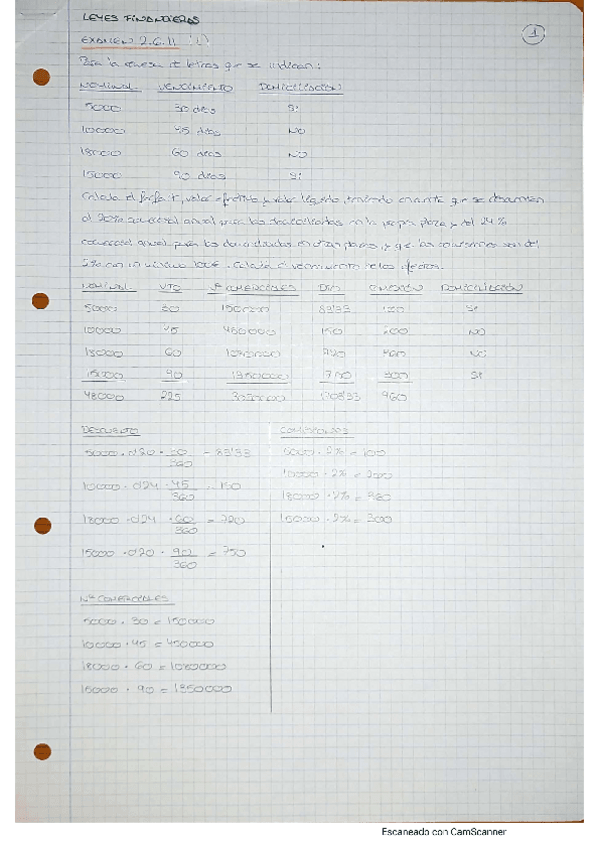 LEYES FINANCIERAS
1
EXAMEN 2.6.11
Para la remesa de letras que se indican:
NOMINAL VENCIMIENTO DOMICILIACIÓN
5000 30 días Sí
10000 45 días NO
18000 60 días NO
15000 90 días Sí
Calcula el valor efectivo y valor líquido, teniendo en cuenta que se descuentan
al 20% comercial anual para las domiciliadas en la plaza y del 24%
comercial anual para las domiciliadas en otras plazas, y que las comisiones son del
2% con un mínimo. Calcula el vencimiento de los efectos.
NOMINAL VTO Nº COMERCIALES DTO COMISIÓN DOMICILIACIÓN
5000 30 150000 83'33 Sí
10000 45 450000 150 200 NO
18000 60 1080000 720 NO
15000 90 1350000 750 300 Sí
48000 225 960
DESCUENTO COMISIONES
5000 · d20 · 30/360 = 83'33 5000 · 2% = 100
10000 · d24 · 45/360 = 150 10000 · 2% = 200
18000 · d24 · 60/360 = 720 18000 · 2% = 360
15000 · d20 · 90/360 = 750 15000 · 2% = 300
Nº COMERCIALES
5000 · 30 = 150000
10000 · 45 = 450000
18000 · 60 = 1080000
15000 · 90 = 1350000
Escaneado con CamScanner